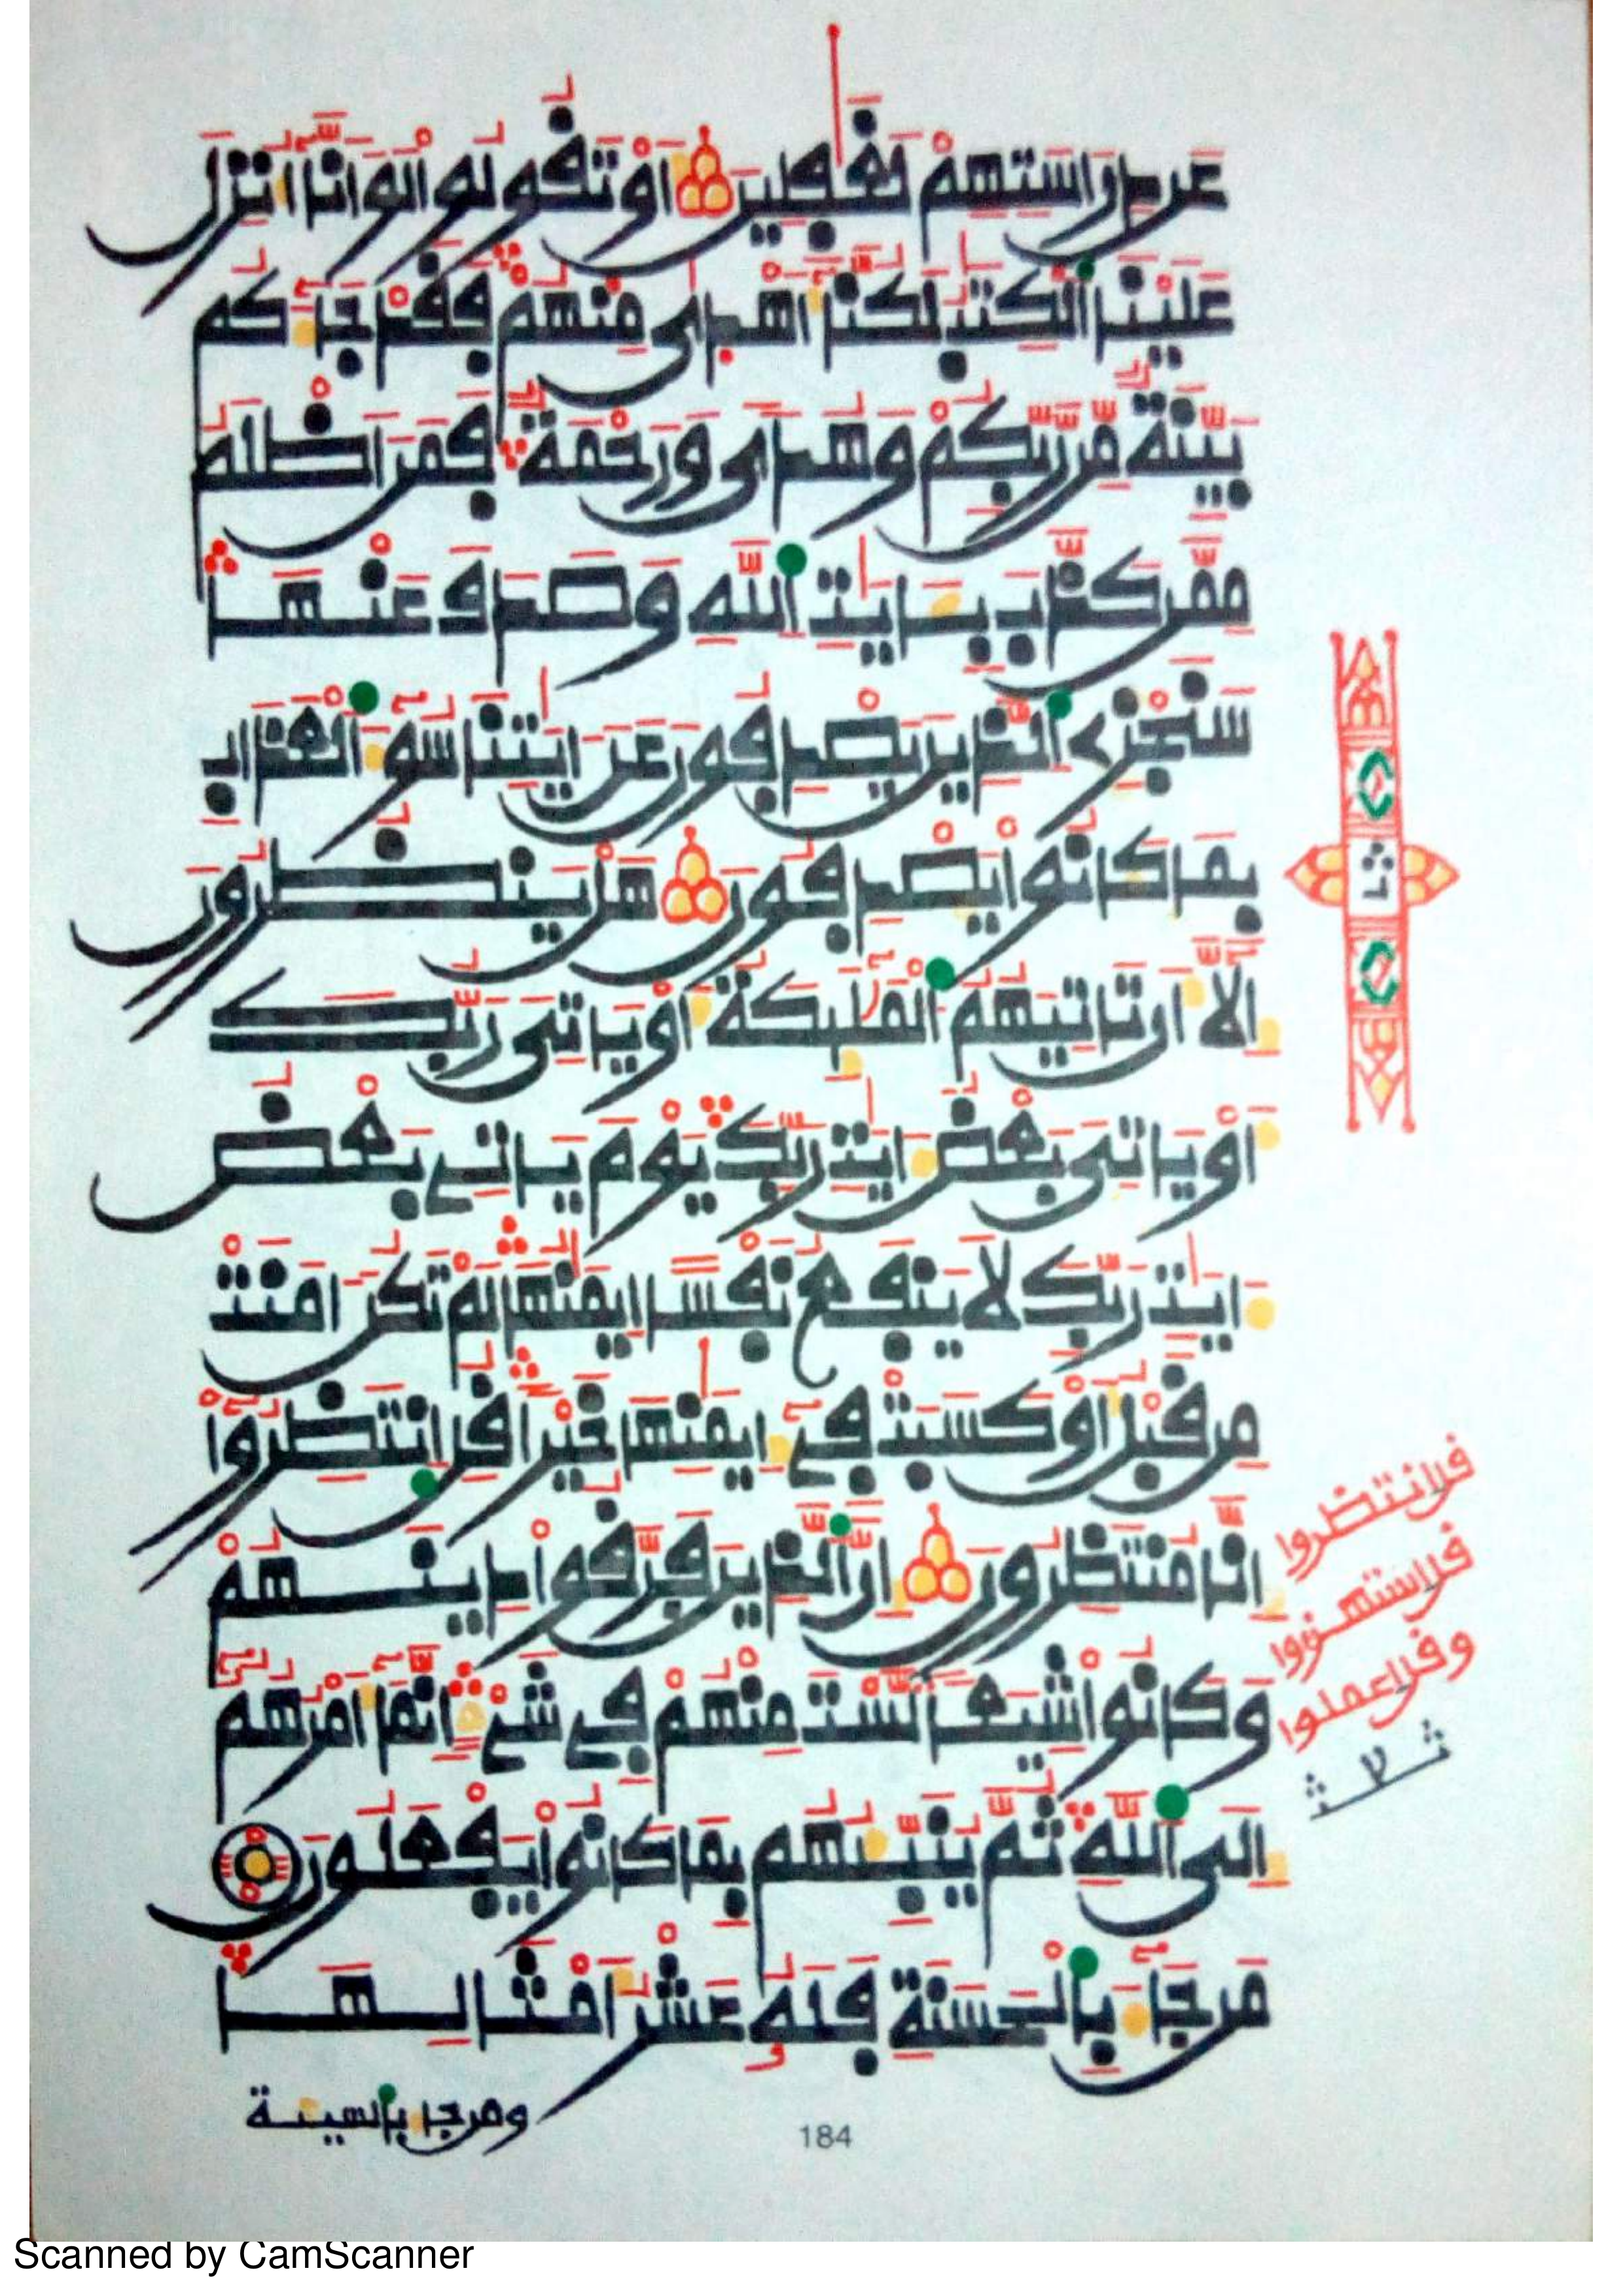 عَن دِرَاسَتِهِمْ لَغَٰفِلِينَ أَوْ تَقُولُوا لَوَ انَّا أُنزِلَ
عَلَيْنَا اَلْكِتَٰبُ لَكُنَّا أَهْدَىٰ مِنْهُمْ فَقَدْ جَآءَكُم
بَيِّنَةٌ مِّن رَّبِّكُمْ وَهُدًى وَرَحْمَةٌ فَمَنَ اَظْلَمُ
مِمَّن كَذَّبَ بِـَٔايَٰتِ اِللَّهِ وَصَدَفَ عَنْهَا
سَنَجْزِي اِلذِينَ يَصْدِفُونَ عَنَ ايَٰتِنَا سُوٓءَ اَلْعَذَابِ
بِمَا كَانُوا يَصْدِفُونَ هَلْ يَنظُرُونَ
إِلَّآ أَن تَاتِيَهُمُ اُلْمَلَٰٓئِكَةُ أَوْ يَاتِيَ رَبُّكَ
أَوْ يَاتِيَ بَعْضُ ءَايَٰتِ رَبِّكَ يَوْمَ يَاتِے بَعْضُ
ءَايَٰتِ رَبِّكَ لَا يَنفَعُ نَفْسًا اِيمَٰنُهَا لَمْ تَكُنَ اٰمَنَتْ
مِن قَبْلُ أَوْ كَسَبَتْ فِےٓ إِيمَٰنِهَا خَيْرًا قُلِ اِنتَظِرُوٓا
إِنَّا مُنتَظِرُونَ إِنَّ اَلذِينَ فَرَّقُوا دِينَهُمْ
وَكَانُوا شِيَعًا لَّسْتَ مِنْهُمْ فِے شَےْءٍ اِنَّمَآ أَمْرُهُمُۥٓ
إِلَى اَللَّهِ ثُمَّ يُنَبِّئُهُم بِمَا كَانُوا يَفْعَلُونَ
مَن جَآءَ بِالْحَسَنَةِ فَلَهُۥ عَشْرُ أَمْثَالِهَا
ومن جاء بالسيئة
قل انتظروا
قل استهزءوا
وقل اعملوا
184
Scanned by CamScanner